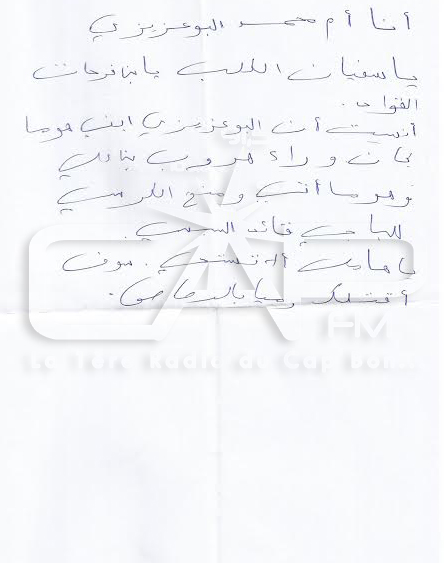 أنا أم محمد البوعزيزي
يا سفيان الكلب يا بن فرحات
الفواح.
أنسيت أن البوعزيزي ابني هوما
كان وراء هروب بن علي
وهو ما أتى ومنح الكرسي
للباجي قائد السبسي.
يا ألا تستحي. سوف
أقتلك رميا بالرصاص.
CAP FM
La 1ère Radio du Cap Bon...